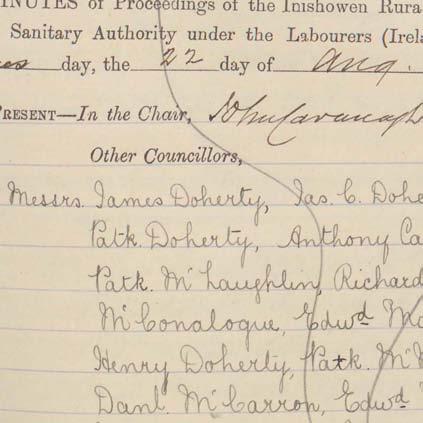 MINUTES of Proceedings of the Inishowen Rura
Sanitary Authority under the Labourers (Irel
day, the 22 day of Aug.
PRESENT—In the Chair, John Cavanagh
Other Councillors,
Messrs. James Doherty, Jas. C. Dohe
Patk. Doherty, Anthony Ca
Patk. McLaughlin, Richard
McConalogue, Edwd Mc
Henry Doherty, Patk. Mc
Danl. McCarron, Edwd